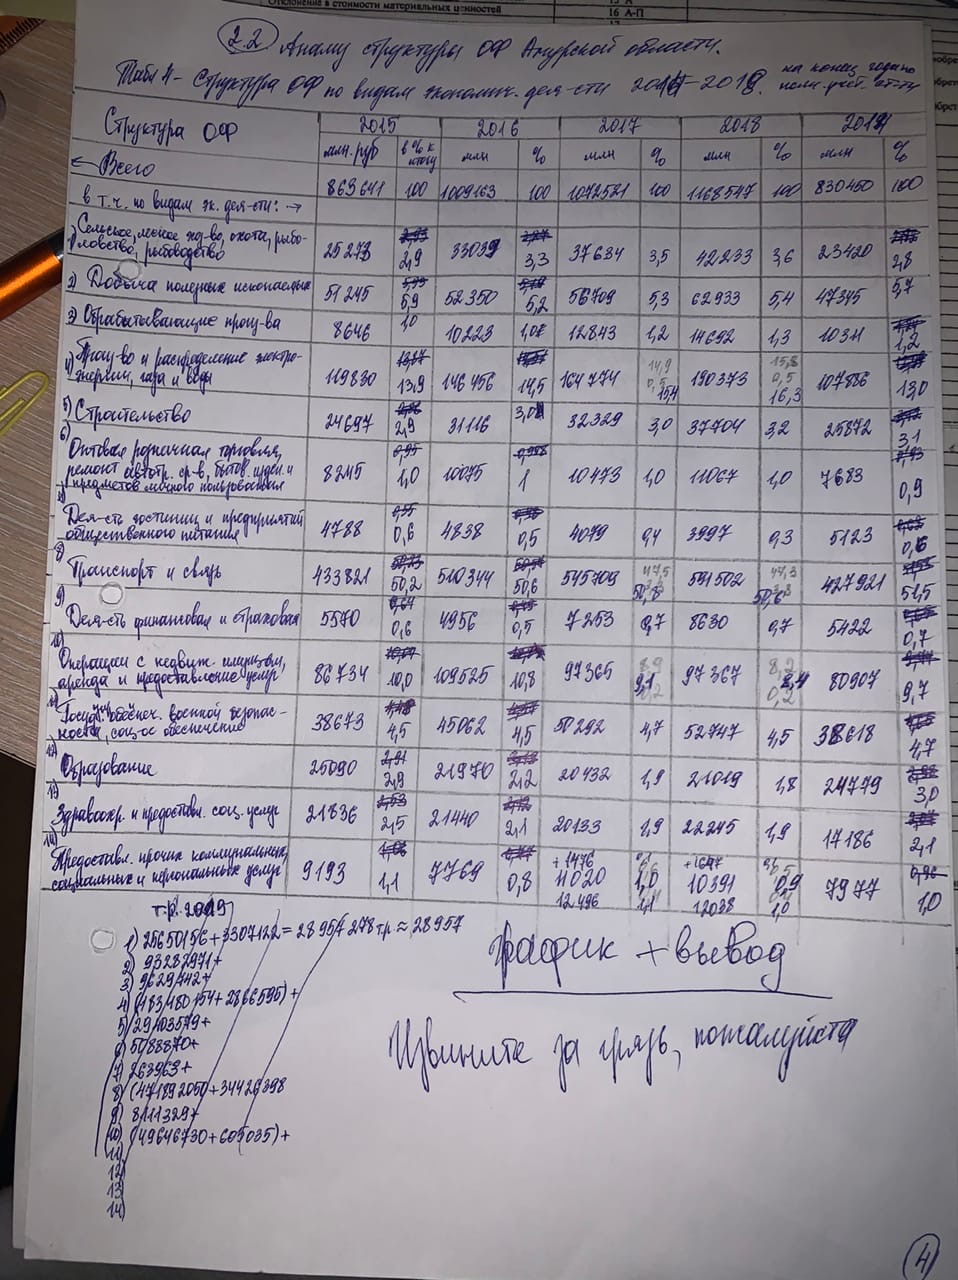 Отклонение в стоимости материальных ценностей
15 А
16 А-П
2.2 Анализ структуры ОФ Амурской области.
Табл 4 - Структура ОФ по видам экономич. дея-сти 2014-2018. на конец года по полн. учет. ст-ти
Структура ОФ 2015 2016 2017 2018 2014
млн. руб в % к итогу млн % млн % млн % млн %
Всего 863641 100 1009163 100 1072521 100 1168547 100 830450 100
в т.ч. по видам эк. дея-сти:
1) Сельское, лесное хоз-во, охота, рыболовство, рыбоводство 25273 2,9 33039 3,3 37634 3,5 42233 3,6 23420 2,8
2) Добыча полезных ископаемых 51245 5,9 52350 5,2 56709 5,3 62933 5,4 47345 5,7
3) Обрабатывающие произ-ва 8646 1,0 10223 1,01 12843 1,2 14692 1,3 10311 1,2
4) Произ-во и распределение электроэнергии, газа и воды 119830 13,9 146456 14,5 164774 14,9 0,5 15,4 190373 15,8 0,5 16,3 107886 13,0
5) Строительство 24697 2,9 31116 3,08 32329 3,0 37704 3,2 25872 3,1
6) Оптовая розничная торговля, ремонт автотр. ср-в, бытов. издел. и предметов личного пользования 8245 1,0 10075 1 10473 1,0 11067 1,0 7683 0,9
Дея-сть гостиниц и предприятий общественного питания 4788 0,6 4838 0,5 4079 0,4 3997 0,3 5123 0,6
8) Транспорт и связь 433821 50,2 510344 50,6 545709 47,5 3,3 50,8 591502 47,3 3,3 50,6 427921 51,5
9 Дея-сть финансовая и страховая 5570 0,6 4956 0,5 7253 0,7 8630 0,7 5422 0,7
10) Операции с недвиж. имуществом, аренда и предоставление услуг 86734 10,0 109525 10,8 97365 8,9 0,2 9,1 97367 8,2 0,2 8,4 80907 9,7
Госуд. обеспеч. военной безопасности, соц-ое обеспечение 38673 4,5 45062 4,5 50292 4,7 52747 4,5 38618 4,7
12) Образование 25090 2,9 21970 2,2 20432 1,9 21019 1,8 24779 3,0
13) Здравоохр. и предоставл. соц. услуг 21836 2,5 21440 2,1 20133 1,9 22245 1,9 17186 2,1
14) Предоставл. прочих коммунальных, социальных и персональных услуг 9193 1,1 7769 0,8 +1476 11020 12496 1,0 1,1 +1647 10391 12038 0,9 1,0 7977 1,0
т.р. 2019
1) 25650156+3307122=28957278 т.р ≈ 28957
2) 93282971+
3) 9629442+
4) (483480154+2866595)+
5) 29403579+
6) 5088870+
7) 263963+
8) (471892050+34426398
9) 8111329+
10) (49646730+605035)+
11)
12
13
14)
График + вывод
Извините за грязь, пожалуйста
4